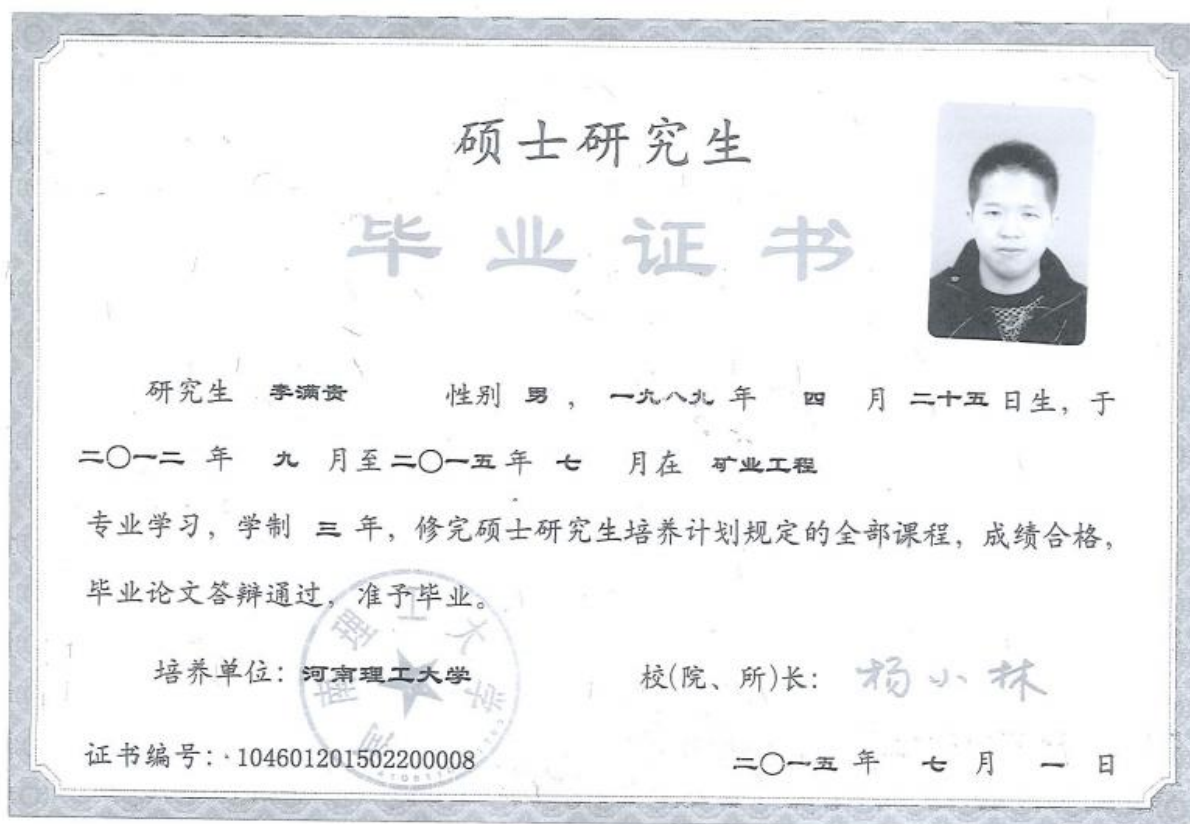 硕士研究生
毕业证书
研究生 李满贵 性别 男 , 一九八九 年 四 月 二十五 日生, 于
二〇一二 年 九 月至 二〇一五 年 七 月在 矿业工程
专业学习, 学制 三 年, 修完硕士研究生培养计划规定的全部课程, 成绩合格,
毕业论文答辩通过, 准予毕业。
河南理工大学
培养单位: 河南理工大学 校(院、所)长: 杨小林
证书编号: 104601201502200008 二〇一五 年 七 月 一 日